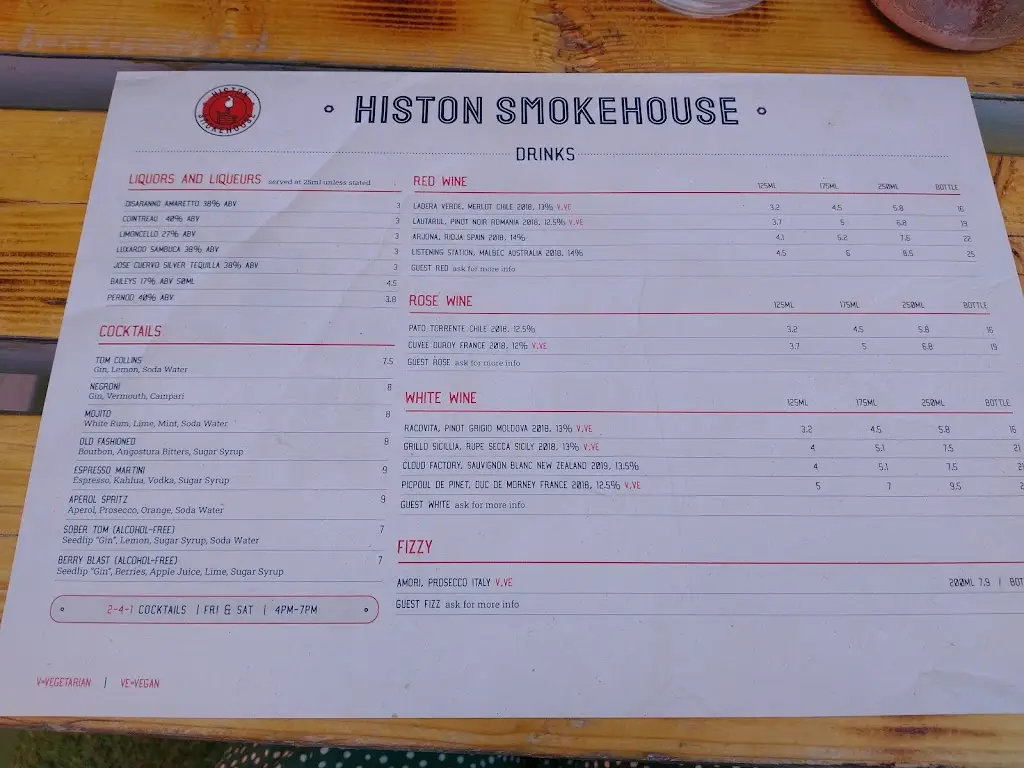 HISTON SMOKEHOUSE
HISTON SMOKEHOUSE
DRINKS
LIQUORS AND LIQUEURS served at 25ml unless stated
DISARANNO AMARETTO 38% ABV 3
COINTREAU 40% ABV 3
LIMONCELLO 27% ABV 3
LUXARDO SAMBUCA 38% ABV 3
JOSE CUERVO SILVER TEQUILLA 38% ABV 3
BAILEYS 17% ABV 50ML 4.5
PERNOD 40% ABV 3.8
COCKTAILS
TOM COLLINS 7.5
Gin, Lemon, Soda Water
NEGRONI 8
Gin, Vermouth, Campari
MOJITO 8
White Rum, Lime, Mint, Soda Water
OLD FASHIONED 8
Bourbon, Angostura Bitters, Sugar Syrup
ESPRESSO MARTINI 9
Espresso, Kahlua, Vodka, Sugar Syrup
APEROL SPRITZ 9
Aperol, Prosecco, Orange, Soda Water
SOBER TOM (ALCOHOL-FREE) 7
Seedlip "Gin", Lemon, Sugar Syrup, Soda Water
BERRY BLAST (ALCOHOL-FREE) 7
Seedlip "Gin", Berries, Apple Juice, Lime, Sugar Syrup
2-4-1 COCKTAILS | FRI & SAT | 4PM-7PM
V=VEGETARIAN | VE=VEGAN
RED WINE 125ML 175ML 250ML BOTTLE
LADERA VERDE, MERLOT CHILE 2018, 13% V,VE 3.2 4.5 5.8 16
LAUTARUL, PINOT NOIR ROMANIA 2018, 12.5% V,VE 3.7 5 6.8 19
ARJONA, RIOJA SPAIN 2018, 14% 4.1 5.2 7.6 22
LISTENING STATION, MALBEC AUSTRALIA 2018, 14% 4.5 6 8.5 25
GUEST RED ask for more info
ROSE WINE 125ML 175ML 250ML BOTTLE
PATO TORRENTE CHILE 2018, 12.5% 3.2 4.5 5.8 16
CUVEE DUROY FRANCE 2018, 12% V,VE 3.7 5 6.8 19
GUEST ROSE ask for more info
WHITE WINE 125ML 175ML 250ML BOTTLE
RACOVITA, PINOT GRIGIO MOLDOVA 2018, 13% V,VE 3.2 4.5 5.8 16
GRILLO SICILLIA, RUPE SECCA SICILY 2018, 13% V,VE 4 5.1 7.5 21
CLOUD FACTORY, SAUVIGNON BLANC NEW ZEALAND 2019, 13.5% 4 5.1 7.5
PICPOUL DE PINET, DUC DE MORNEY FRANCE 2018, 12.5% V,VE 5 7 9.5
GUEST WHITE ask for more info
FIZZY
AMORI, PROSECCO ITALY V,VE 200ML 7.9 | BOT
GUEST FIZZ ask for more info